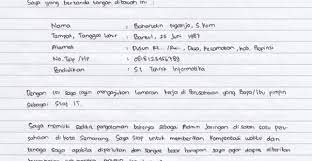 Saya yang bertanda tangan dibawah ini :
Nama : Baharudin Ngainjo, S.Kom
Tempat, Tanggal Lahir : Bantul, 25 Juni 1987
Alamat : Dusun RT../RW.., Desa, Kecamatan, Kab, Propinsi
No. Telp /HP : 008123456789
Pendidikan : S1 Teknik Informatika
Dengan ini saya ingin mengajukan lamaran kerja di Perusahaan yang Bapak/Ibu pimpin
sebagai Staf IT.
Saya memiliki sedikit pengalaman bekerja sebagai Admin Jaringan di salah satu peru-
sahaan di kota Semarang. Saya siap untuk memberikan kompensasi waktu dan
tenaga saya apabila diperlukan dan sangat besar harapan saya agar dapat diberikan